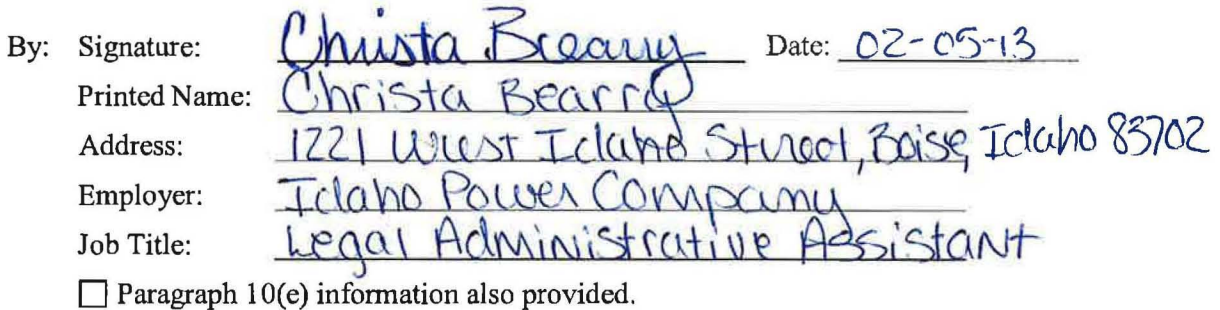 By: Signature: Christa Bearry Date: 02-05-13
Printed Name: Christa Bearry
Address: 1221 West Idaho Street, Boise, Idaho 83702
Employer: Idaho Power Company
Job Title: Legal Administrative Assistant
☐ Paragraph 10(e) information also provided.